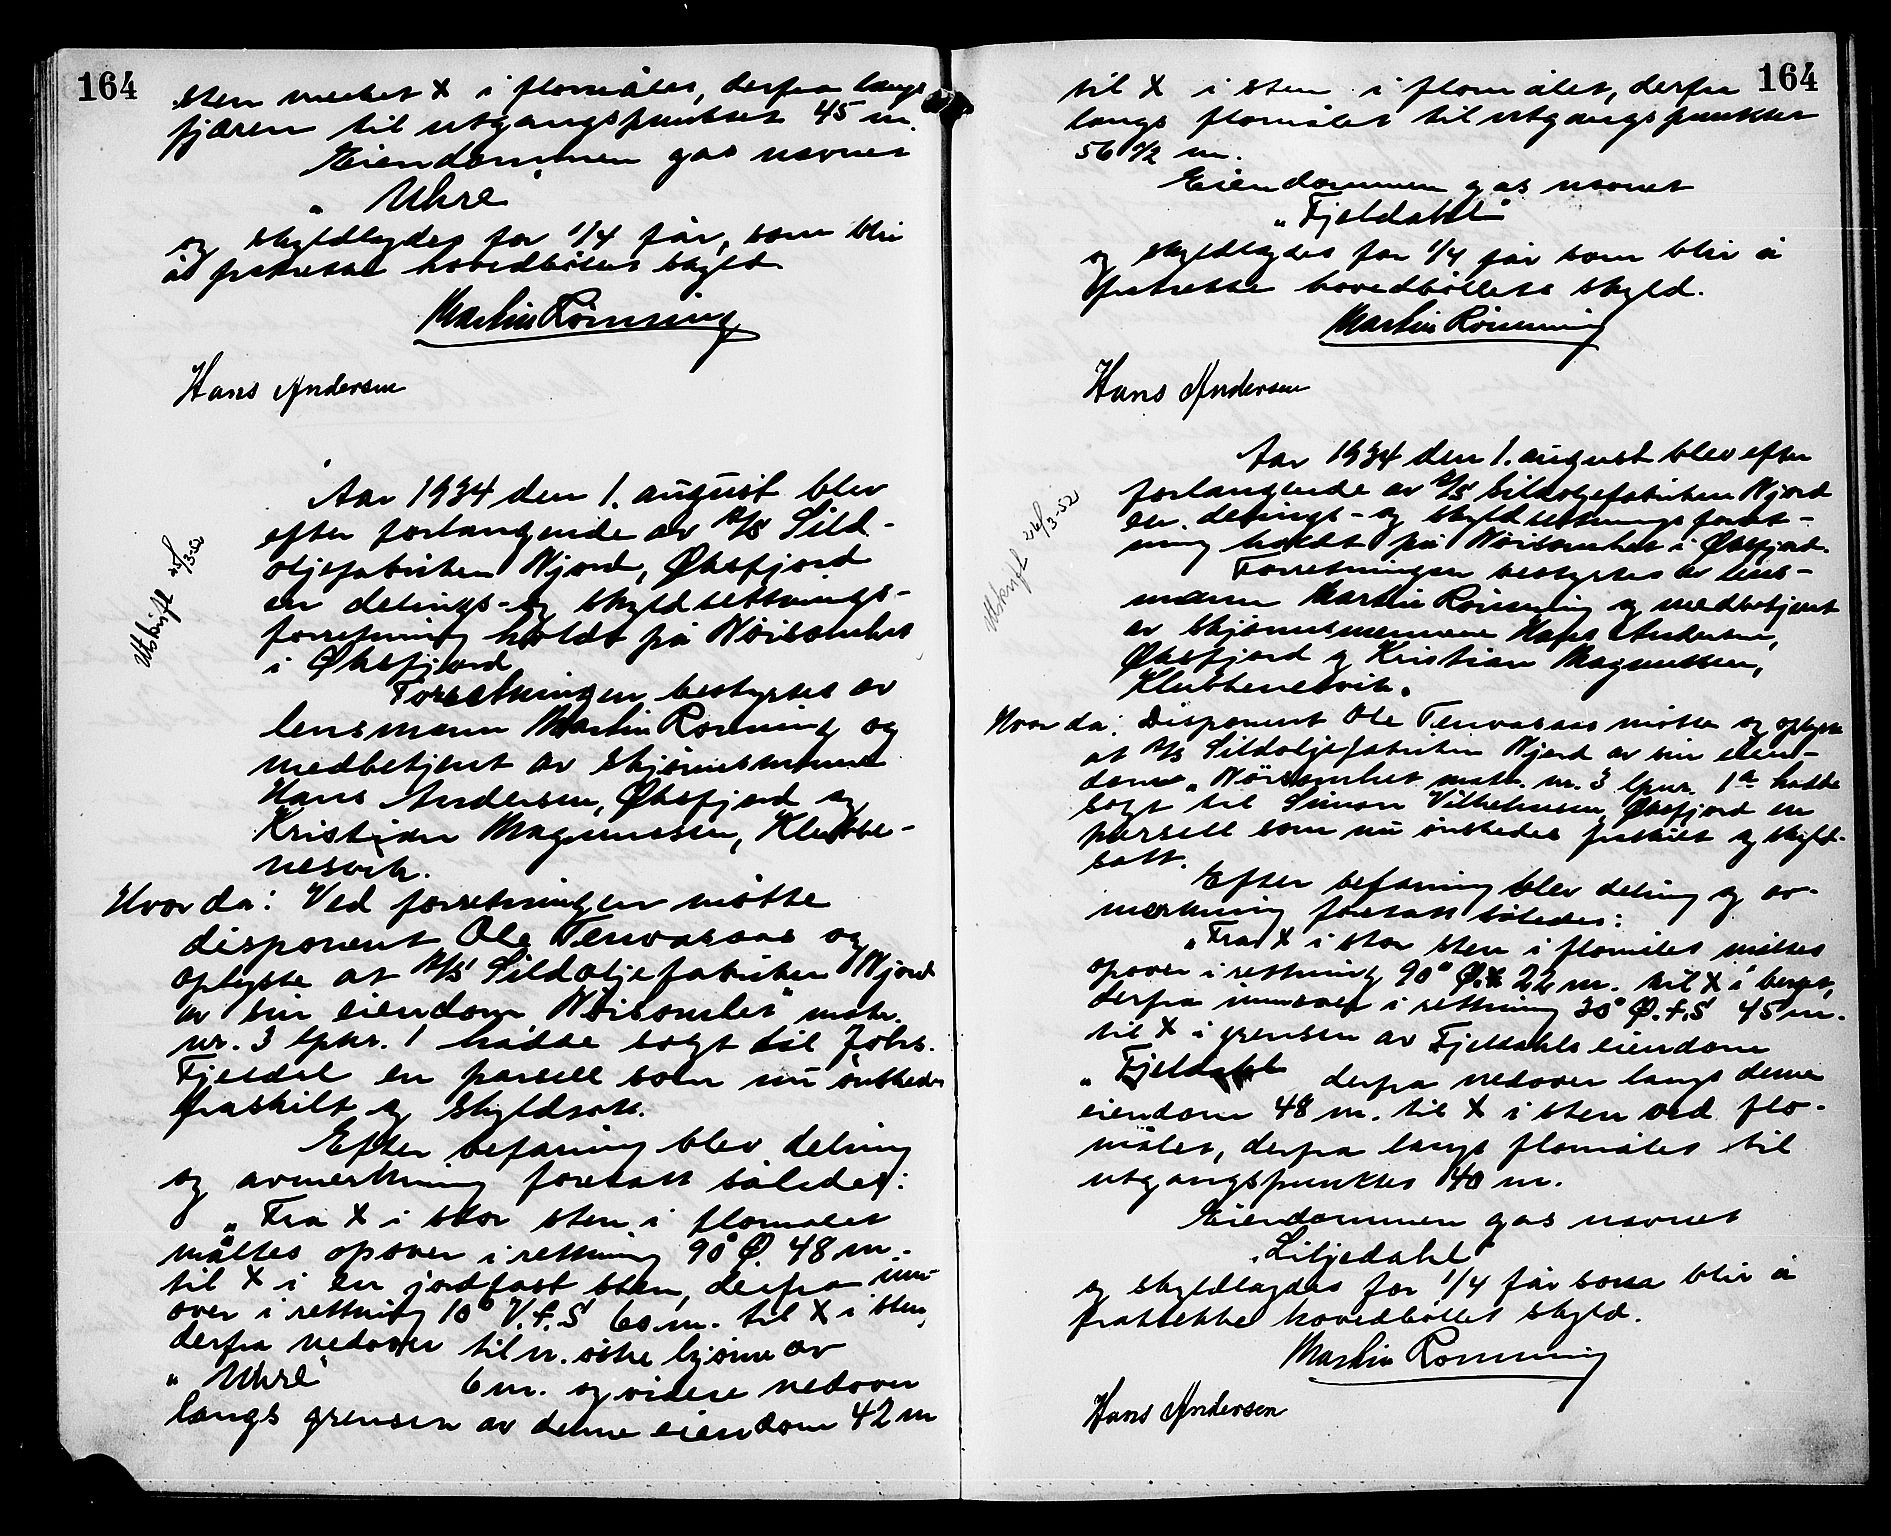 164
sten merket X i flomålet, derfra langs
fjæren til utgangspunktet 45 m.
Eiendommen gas navnet
"Uhre"
og skyldlagdes for 1/4 får, som blir
å fratrekke hovedbølets skyld.
Martin Rönning
Hans Andersen
Utskrift 25/3-52
Aar 1934 den 1. august blev
efter forlangende av A/S Sild-
oljefabriken Njord, Øksfjord
en delings- og skyldsetnings-
forretning holdt på Nöisomhet
i Øksfjord
Forretningen bestyrtes av
lensmann Martin Rönning og
medbetjent av skjönsmennene
Hans Andersen, Øksfjord og
Kristian Magnussen, Klubbe-
nesvik.
Hvor da: Ved forretningen mötte
disponent Ole Tenvasaas og
oplyste at A/S Sildoljefabriken Njord
av sin eiendom "Nöisomhet" matr.
nr. 3 lpnr. 1 hadde solgt til Johs.
Fjeldal en parsell som nu önskedes
fraskilt og skyldsatt.
Efter befaring blev deling
og avmerkning foretatt således:
"Fra X i stor sten i flomålet
måltes opover i retning 90° Ø. 48 m.
til X i en jordfast sten, derfra inn-
over i retning 10° V.f.S 60 m. til X i sten,
derfra nedover til n. östre hjörne av
"Uhre" 6 m. og videre nedover
langs grensen av denne eiendom 42 m
164
til X i sten i flomålet, derfra
langs flomålet til utgangspunktet
56 1/2 m.
Eiendommen gas navnet
"Fjeldahl"
og skyldlagdes for 1/4 får som blir å
fratrekke hovedbölets skyld.
Martin Rönning
Hans Andersen
Utskrift 26/3-52
Aar 1934 den 1. august blev efter
forlangende av A/S Sildoljefabriken Njord
en delings- og skyldsetningsforret-
ning holdt på Nöisomhet i Øksfjord.
Forretningen bestyrtes av lens-
mann Martin Rönning og medbetjent
av skjönnsmennene Hans Andersen,
Øksfjord og Kristian Magnussen,
Klubbenesvik.
Hvor da: Disponent Ole Tenvasaas mötte og oplyste
at A/S Sildoljefabriken Njord av sin eien-
dom "Nöisomhet" matr. nr. 3 lpnr. 1a hadde
solgt til Simon Vilhelmsen, Øksfjord en
parsell som nu önskedes fraskilt og skyld-
satt.
Efter befaring blev deling og av-
merkning foretatt således:
"Fra X i stor sten i flomålet måltes
opover i retning 90° Ø. 22 m. til X i berget,
derfra innover i retning 30° Ø.f.S 45 m.
til X i grensen av Fjeldahls eiendom
"Fjeldahl" derfra nedover langs denne
eiendom 48 m. til X i sten ved flo-
målet, derfra langs flomålet til
utgangspunktet 40 m.
Eiendommen gas navnet
"Liljedahl"
og skyldlagdes for 1/4 får som blir å
fratrekke hovedbölet skyld.
Martin Rönning
Hans Andersen